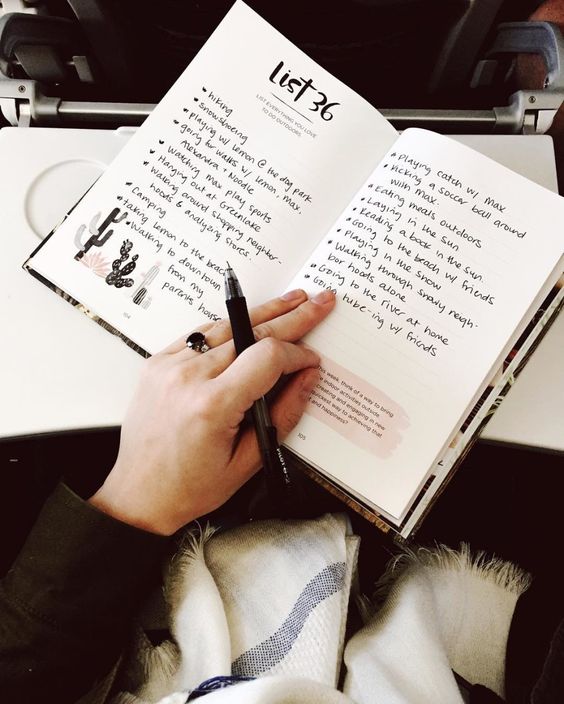 List 36
LIST EVERYTHING YOU LOVE
TO DO OUTDOORS:
hiking
snowshoeing
playing w/ lemon @ the dog park
going for walks w/ lemon, max,
Alexandra + Noodle
Watching max play sports
Hanging out at Greenlake
Walking around shopping neighbor-
hoods & analyzing stores.
Camping
Taking lemon to the beach
Walking to downtown
from my
parents house
104
Playing catch w/ max
Kicking a soccer ball around
with max.
Eating meals outdoors
Laying in the sun
Reading a book in the sun
Going to the beach w/ friends
Playing in the snow
Walking through snowy neigh-
bor hoods alone
Going to the river at home
Going tube-ing w/ friends
This week, think of a way to bring
indoor activities outside.
creating and engaging in new
quickest way to achieving that
and happiness?
105